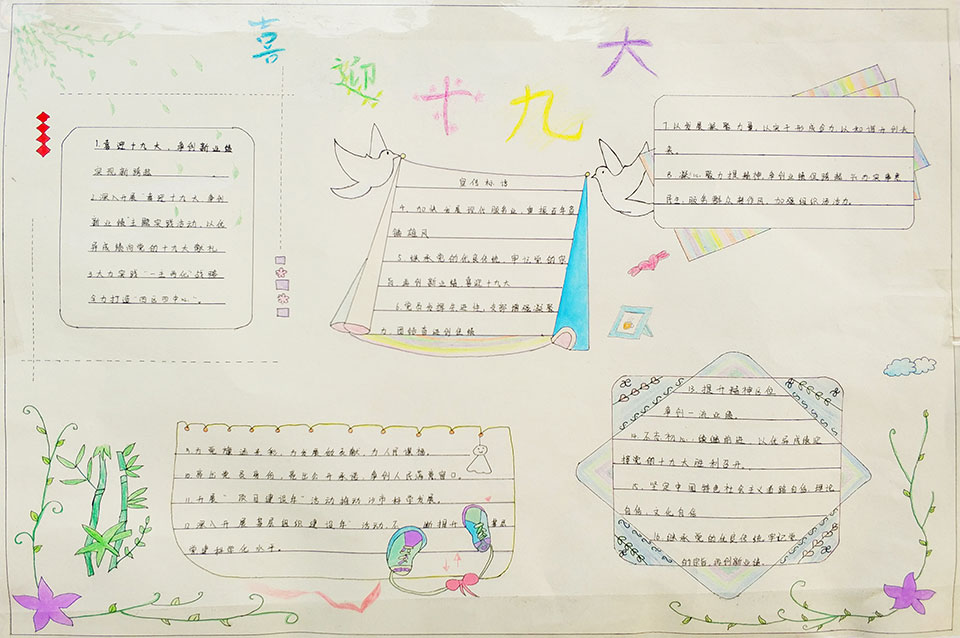 喜迎十九大
1.喜迎十九大，争创新业绩
实现新跨越
2.深入开展“喜迎十九大 争创
新业绩主题实践活动，以优
异成绩向党的十九大献礼
3.大力实践“一主两化”战略
全力打造“四区四中心”。
宣传标语
4.加快发展现代服务业，重振百年商
埠雄风
5.继承党的优良传统，牢记党的宗
旨 再创新业绩 喜迎十九大
6.党员发挥先进性，支部增强凝聚
力，团结奋进创佳绩
7.以发展凝聚力量，以实干形成合力，以和谐开创未
来。
8.凝心聚力提精神 争创业绩促跨越
加强组织活活力。
9.为党旗添光彩，为发展做贡献，为人民谋福。
10.亮出党员身份，亮出公开承诺，争创人民满意窗口。
11.开展“项目建设年”活动推动沙市科学发展。
12.深入开展基层组织建设年”活动，不断提升基层
党建科学化水平。
13.提升精神区位
争创一流业绩
14.不忘初心，继续前进，以优异成绩迎
接党的十九大胜利召开。
坚定中国特色社会主义道路自信，理论
自信，文化自信
16.继承党的优良传统 牢记党
的宗旨，再创新业绩。